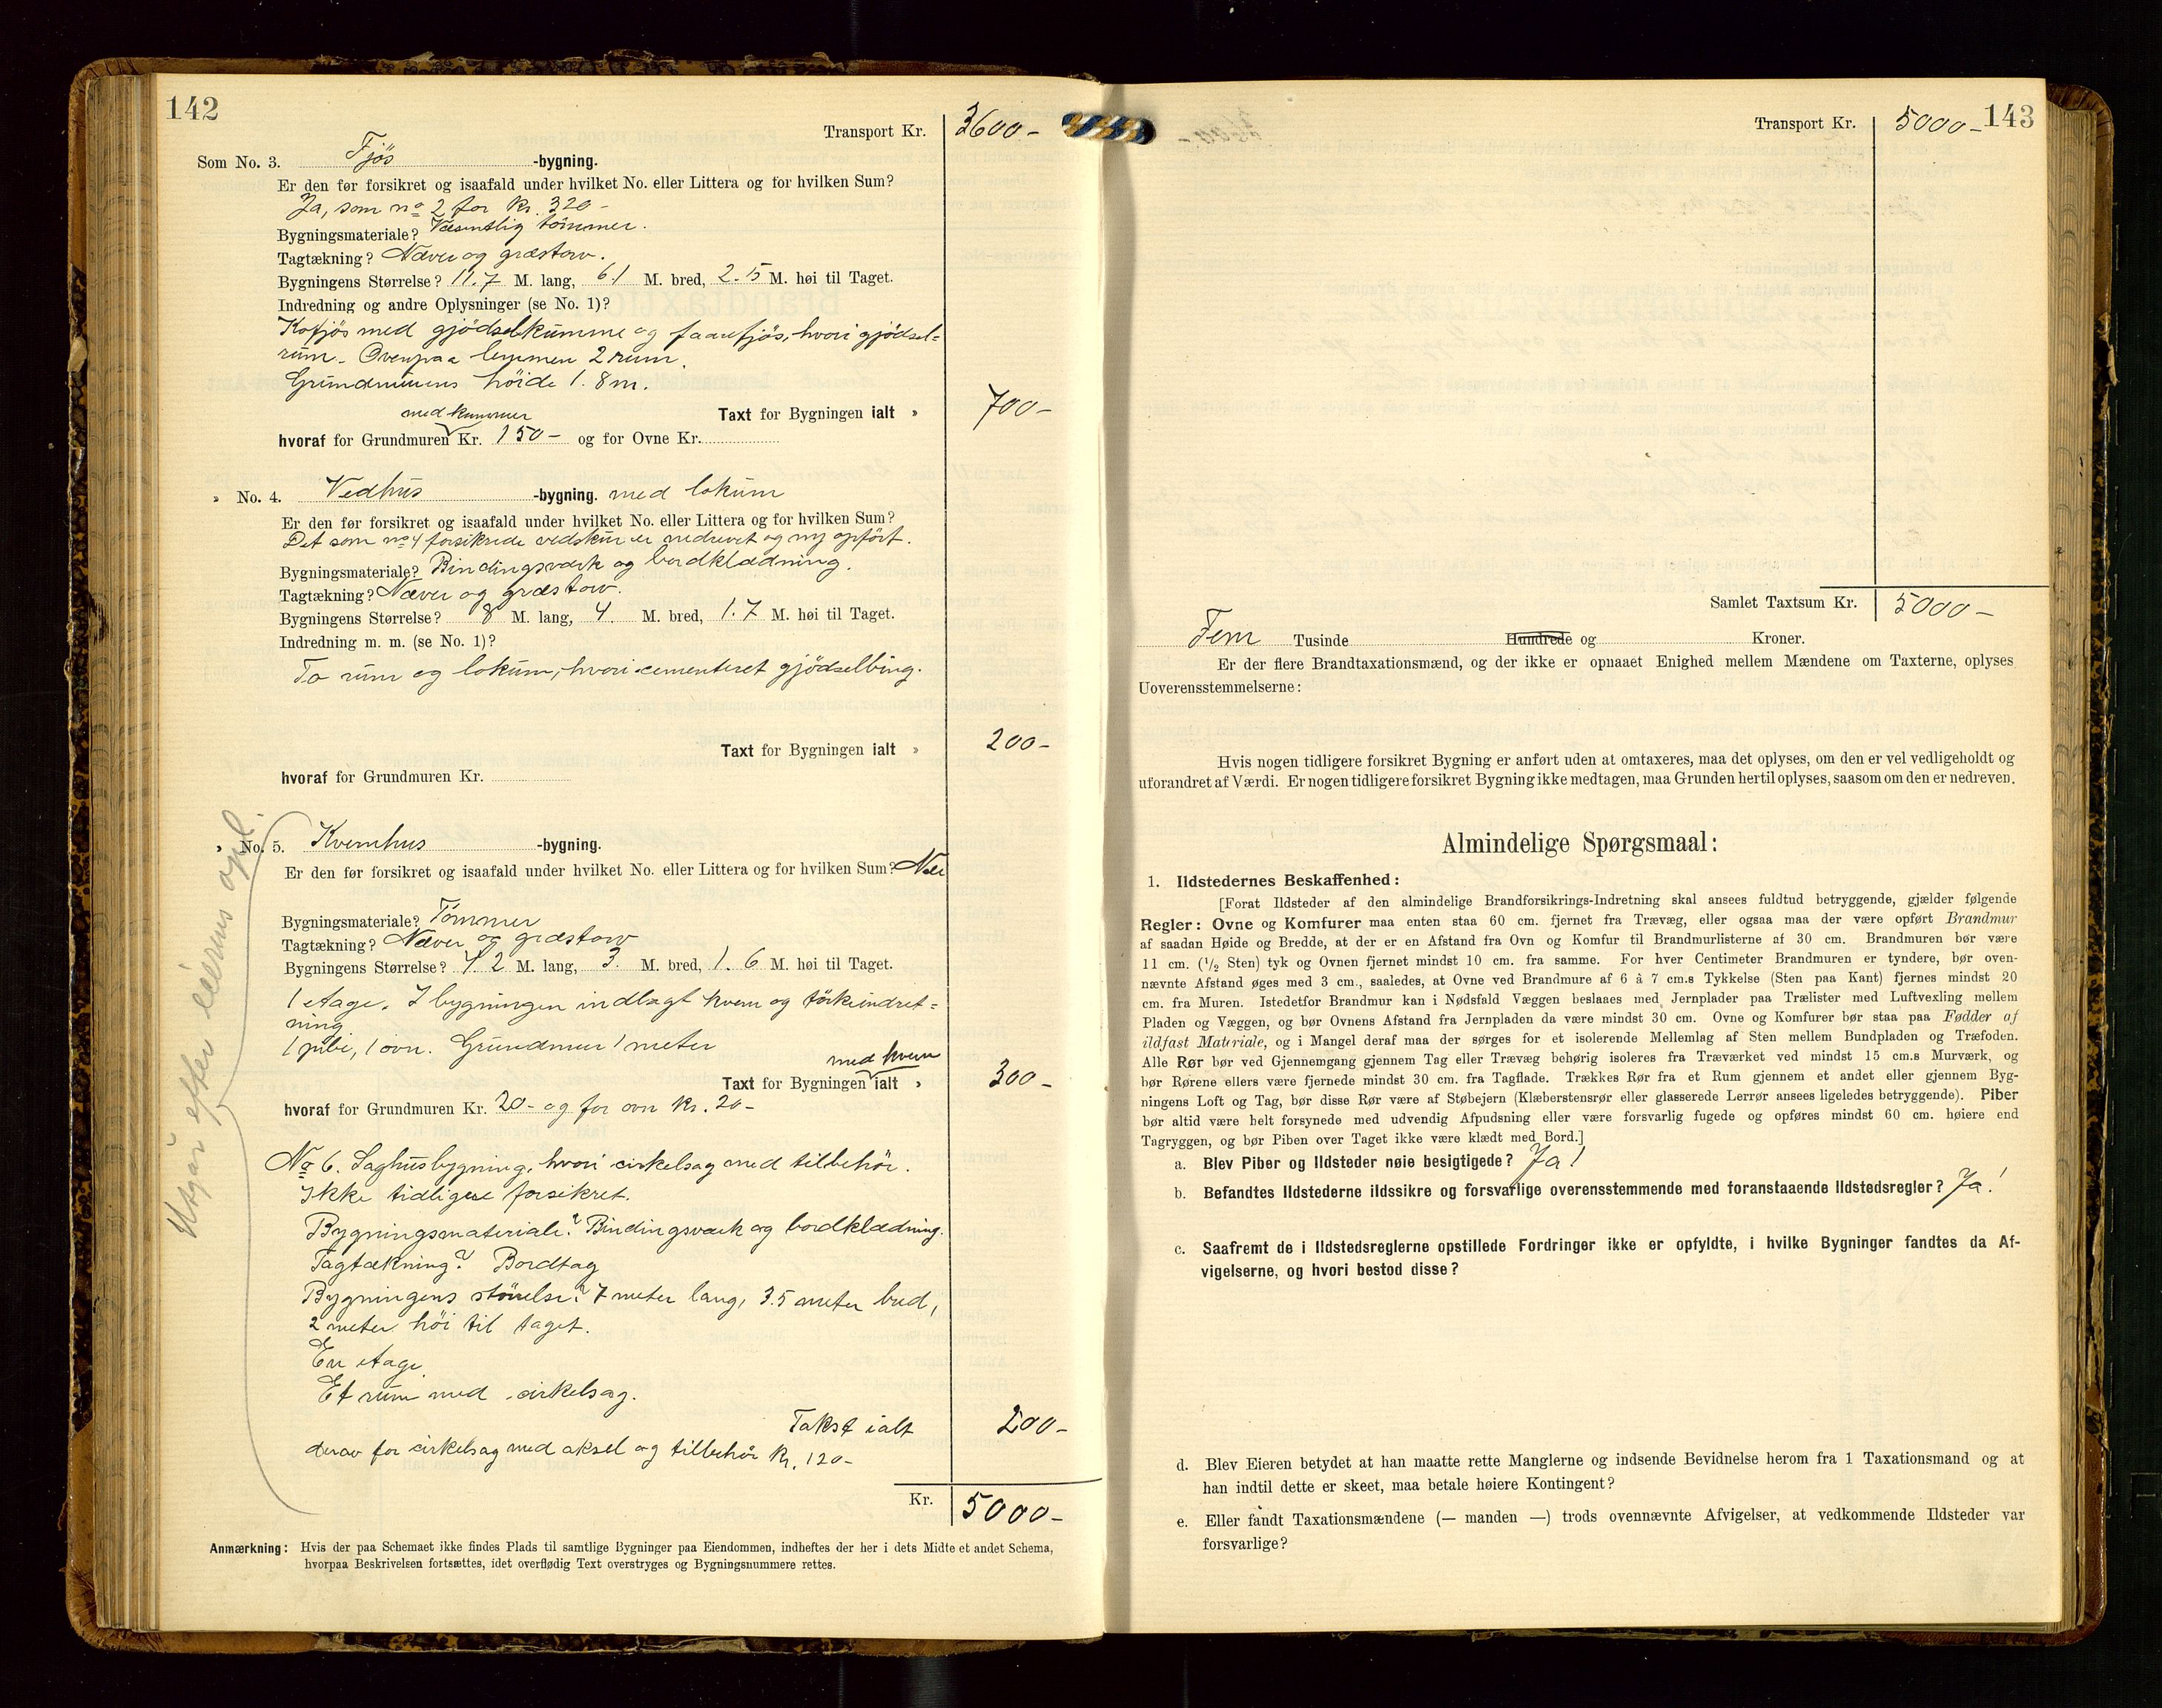 142
Transport Kr. 3600-
Som No. 3. Fjös -bygning.
Er den før forsikret og isaafald under hvilket No. eller Littera og for hvilken Sum?
Ja, som no 2 for kr. 320-
Bygningsmateriale? Væsentlig tömmer.
Tagtækning? Næver og græstorv.
Bygningens Størrelse? 11.7 M. lang, 6.1 M. bred, 2.15 M. høi til Taget.
Indredning og andre Oplysninger (se No. 1)?
Kofjös med gjödselkumme og faarefjös, hvori gjödsel=
rum. Ovenpaa lemmen 2 rum.
Grundmurens höide 1.8 m.
Taxt for Bygningen ialt » 700-
med kummer
hvoraf for Grundmuren Kr. 150- og for Ovne Kr.
» No. 4. Vedhus -bygning. med lokum
Er den før forsikret og isaafald under hvilket No. eller Littera og for hvilken Sum?
Det som no 4 forsikrede vedskur er nedrevet og ny opfört.
Bygningsmateriale? Bindingsværk og bordklædning.
Tagtækning? Næver og græstorv.
Bygningens Størrelse? 8 M. lang, 4. M. bred, 1.7 M. høi til Taget.
Indredning m. m. (se No. 1)?
To rum og lokum, hvori cementeret gjödselbing.
Taxt for Bygningen ialt » 200-
hvoraf for Grundmuren Kr.
» No. 5. Kvernhus -bygning.
Er den før forsikret og isaafald under hvilket No. eller Littera og for hvilken Sum? Nei
Bygningsmateriale? Tömmer
Tagtækning? Næver og græstorv
Bygningens Størrelse? 4.2 M. lang, 3. M. bred, 1.6 M. høi til Taget.
1 etage. I bygningen indlagt kvern og törkeindret=
ning.
1 pibe, 1 ovn. Grundmur 1 meter
med kvern
Taxt for Bygningen ialt » 300-
hvoraf for Grundmuren Kr. 20- og for ovn kr. 20-
No 6. Saghusbygning, hvori cirkelsag med tilbehör.
Ikke tidligere forsikret.
Bygningsmateriale? Bindingsværk og bordklædning.
Tagtækning? Bordtag
Bygningens störrelse? 7 meter lang, 3.5 meter bred,
2 meter höi til taget.
En etage.
Et rum med cirkelsag.
Takst ialt 200-
derav for cirkelsag med aksel og tilbehör kr. 120-
Kr. 5000-
Anmærkning: Hvis der paa Schemaet ikke findes Plads til samtlige Bygninger paa Eiendommen, indheftes der her i dets Midte et andet Schema,
hvorpaa Beskrivelsen fortsættes, idet overflødig Text overstryges og Bygningsnummere rettes.
Utgår efter eierens opl.
143
Transport Kr. 5000-
Samlet Taxtsum Kr. 5000-
Fem Tusinde Hundrede og Kroner.
Er der flere Brandtaxationsmænd, og der ikke er opnaaet Enighed mellem Mændene om Taxterne, oplyses
Uoverensstemmelserne:
Hvis nogen tidligere forsikret Bygning er anført uden at omtaxeres, maa det oplyses, om den er vel vedligeholdt og
uforandret af Værdi. Er nogen tidligere forsikret Bygning ikke medtagen, maa Grunden hertil oplyses, saasom om den er nedreven.
Almindelige Spørgsmaal:
1. Ildstedernes Beskaffenhed:
[Forat Ildsteder af den almindelige Brandforsikrings-Indretning skal ansees fuldtud betryggende, gjælder følgende
Regler: Ovne og Komfurer maa enten staa 60 cm. fjernet fra Trævæg, eller ogsaa maa der være opført Brandmur
af saadan Høide og Bredde, at der er en Afstand fra Ovn og Komfur til Brandmurlisterne af 30 cm. Brandmuren bør være
11 cm. (1/2 Sten) tyk og Ovnen fjernet mindst 10 cm. fra samme. For hver Centimeter Brandmuren er tyndere, bør oven-
nævnte Afstand øges med 3 cm., saaledes, at Ovne ved Brandmure af 6 à 7 cm.s Tykkelse (Sten paa Kant) fjernes mindst 20
cm. fra Muren. Istedetfor Brandmur kan i Nødsfald Væggen beslaaes med Jernplader paa Trælister med Luftvexling mellem
Pladen og Væggen, og bør Ovnens Afstand fra Jernpladen da være mindst 30 cm. Ovne og Komfurer bør staa paa Fødder af
ildfast Materiale, og i Mangel deraf maa der sørges for et isolerende Mellemlag af Sten mellem Bundpladen og Træfoden.
Alle Rør bør ved Gjennemgang gjennem Tag eller Trævæg behørig isoleres fra Træværket ved mindst 15 cm.s Murværk, og
bør Rørene ellers være fjernede mindst 30 cm. fra Tagflade. Trækkes Rør fra et Rum gjennem et andet eller gjennem Byg-
ningens Loft og Tag, bør disse Rør være af Støbejern (Klæberstensrør eller glasserede Lerrør ansees ligeledes betryggende). Piber
bør altid være helt forsynede med udvendig Afpudsning eller være forsvarlig fugede og opføres mindst 60 cm. høiere end
Tagryggen, og bør Piben over Taget ikke være klædt med Bord.]
a. Blev Piber og Ildsteder nøie besigtigede? Ja!
b. Befandtes Ildstederne ildssikre og forsvarlige overensstemmende med foranstaaende Ildstedsregler? Ja!
c. Saafremt de i Ildstedsreglerne opstillede Fordringer ikke er opfyldte, i hvilke Bygninger fandtes da Af-
vigelserne, og hvori bestod disse?
d. Blev Eieren betydet at han maatte rette Manglerne og indsende Bevidnelse herom fra 1 Taxationsmand og at
han indtil dette er skeet, maa betale høiere Kontingent?
e. Eller fandt Taxationsmændene (— manden —) trods ovennævnte Afvigelser, at vedkommende Ildsteder var
forsvarlige?